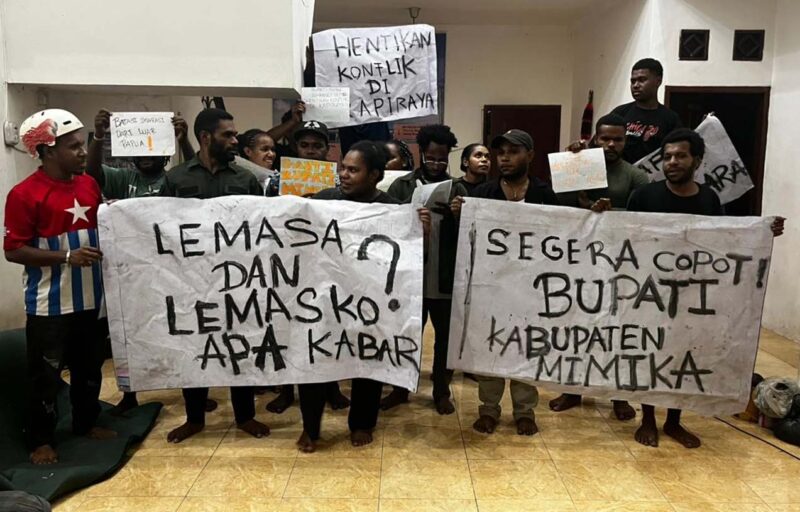 HENTIKAN
KONFLIK
DI
KAPIRAYA
DARI LUAR
PAPUA !
BUPATI
MIMIKA
LEMASA
DAN ?
LEMASKO
APA KABAR
SEGERA COPOT !
BUPATI
KABUPATEN
MIMIKA